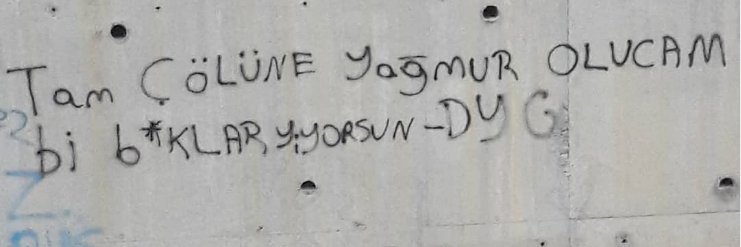 Tam ÇÖLÜNE yağMUR OLUCAM
bi b*KLAR YiYORSUN-DYG